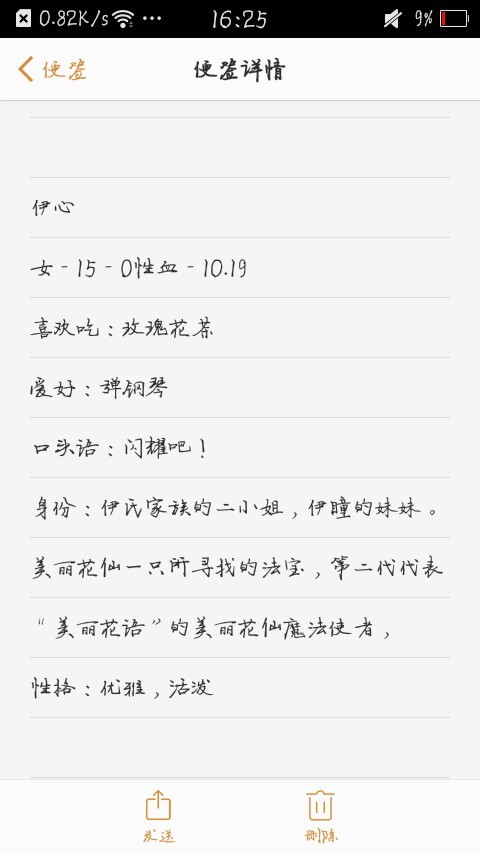 0.82K/s ••• 16:25 9%
便签 便签详情
伊心
女-15-O性血-10.19
喜欢吃：玫瑰花茶
爱好：弹钢琴
口头语：闪耀吧！
身份：伊氏家族的二小姐，伊瞳的妹妹。
美丽花仙一只所寻找的法宝，第二代代表
“美丽花语”的美丽花仙魔法使者，
性格：优雅，活泼
发送 删除